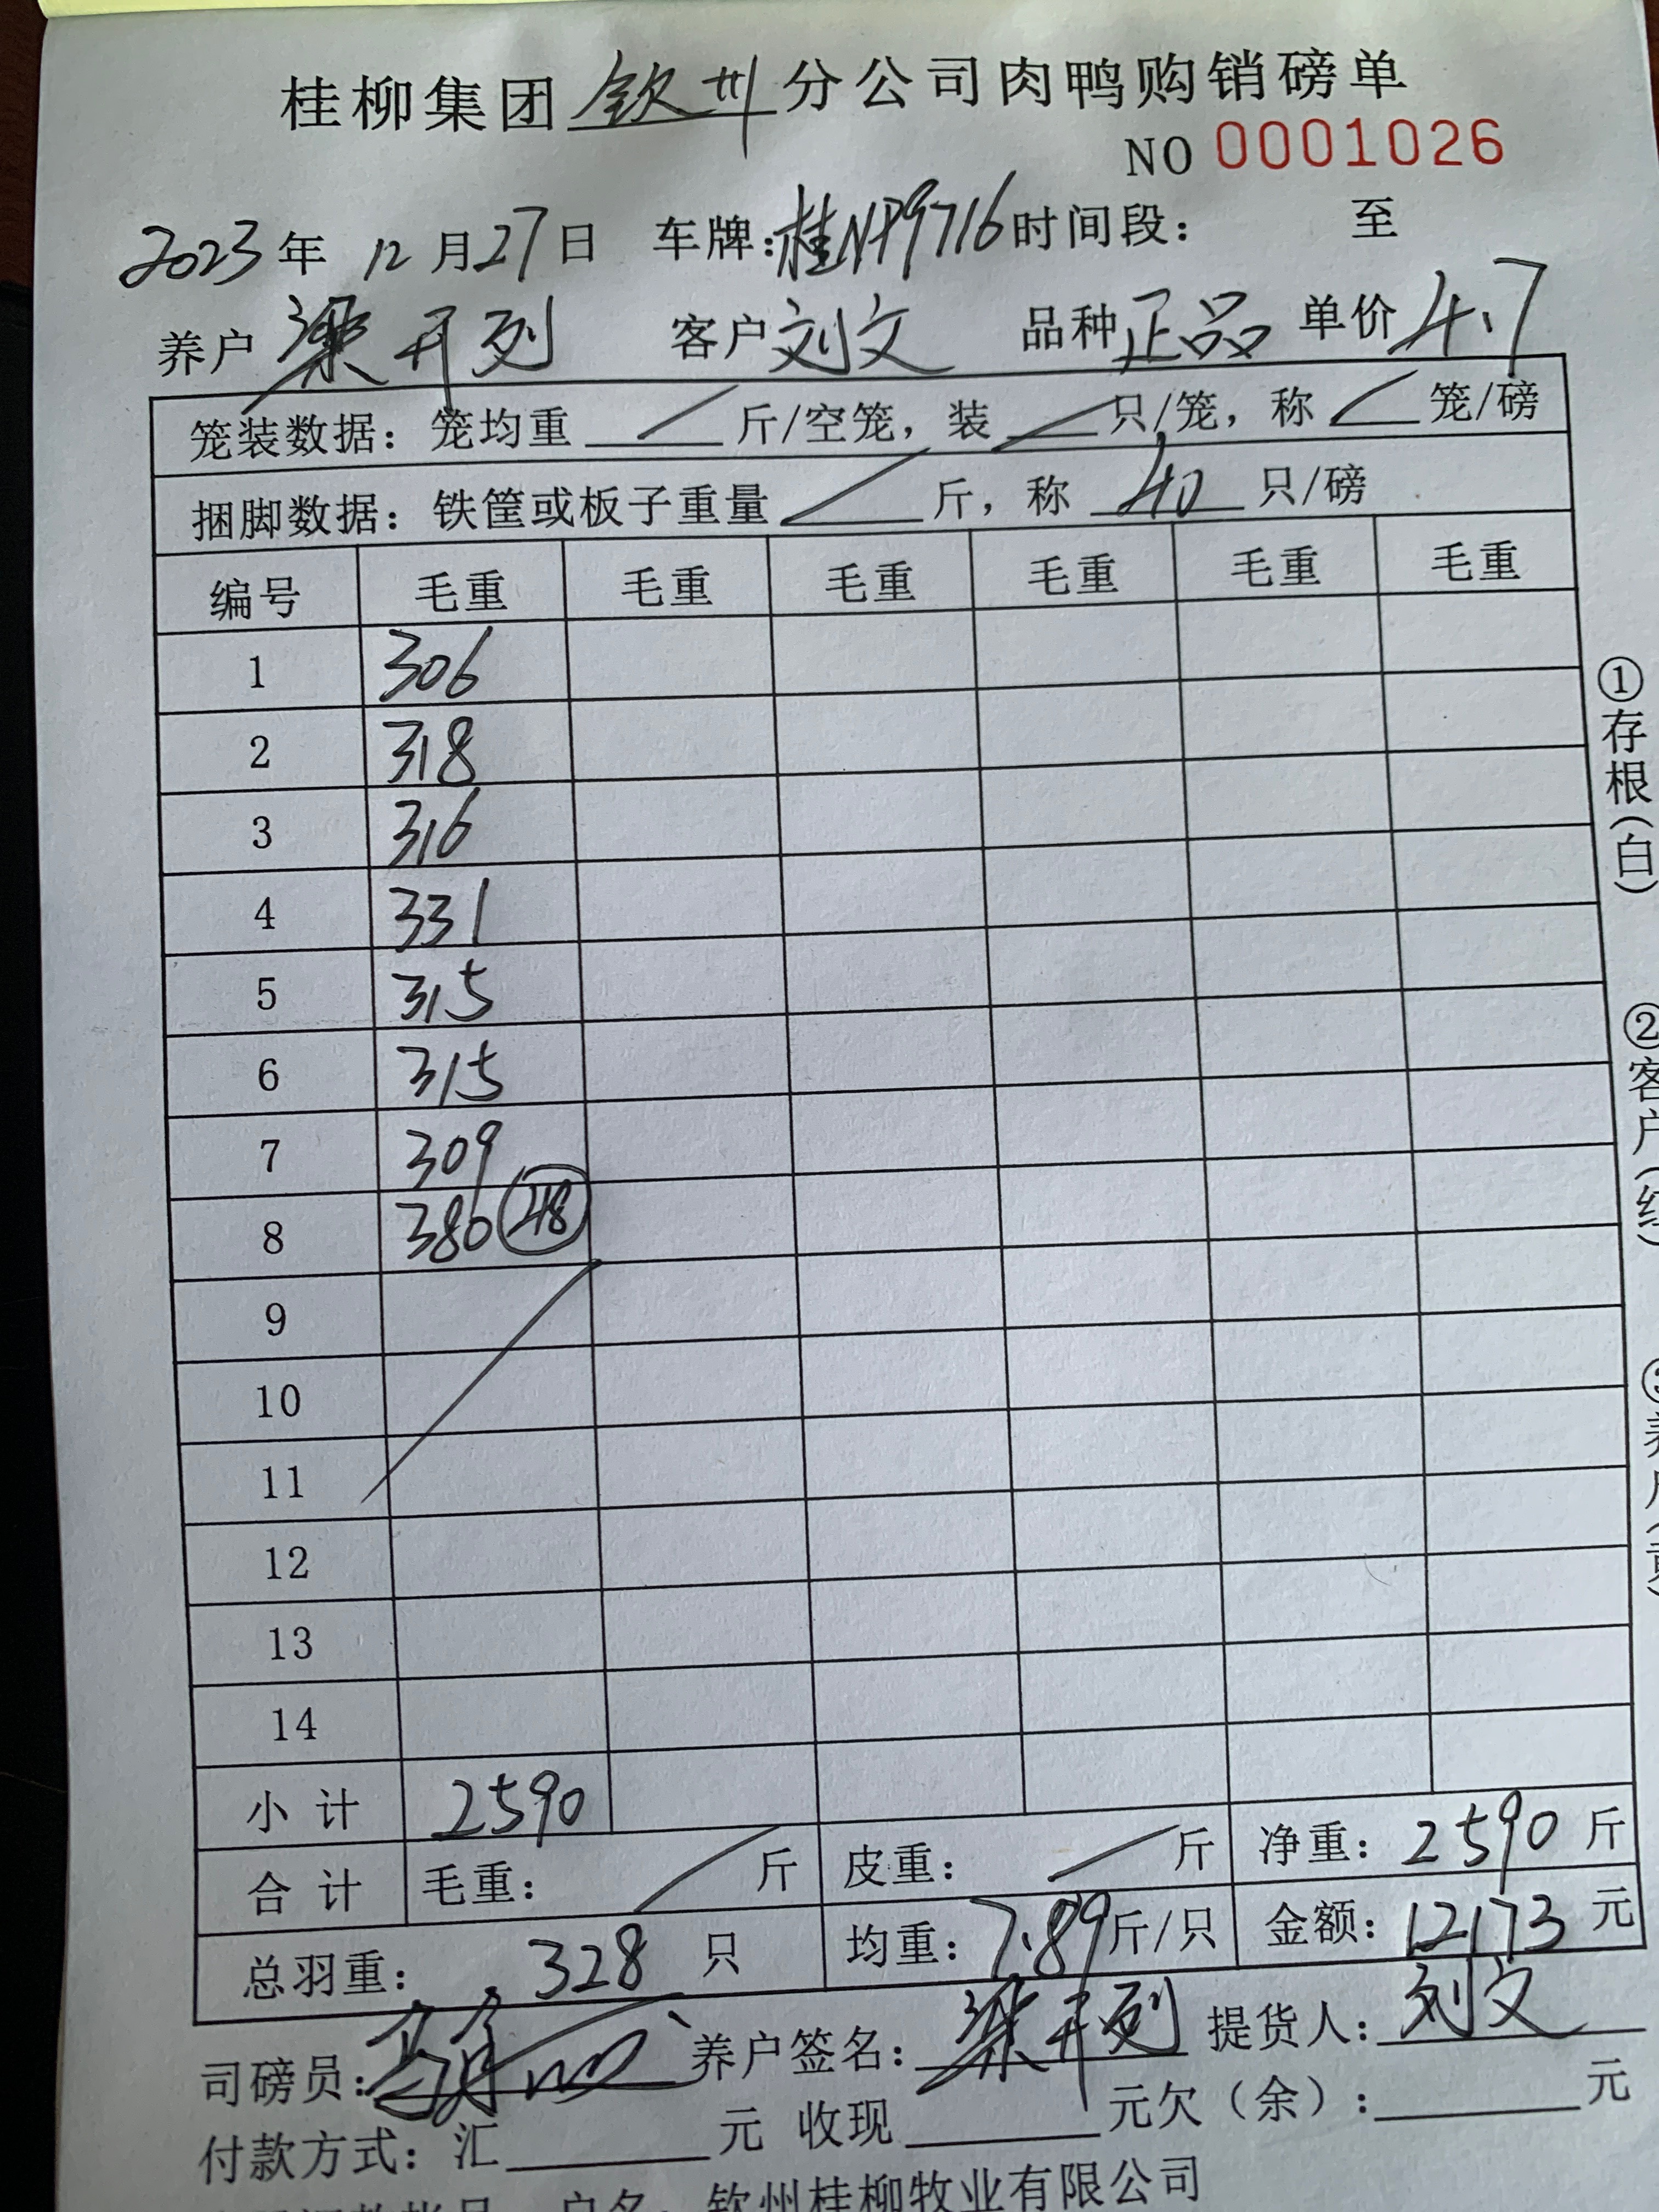 桂柳集团钦州分公司肉鸭购销磅单
NO 0001026
2023年 12月27日 车牌:桂NP9716时间段: 至
养户 梁开列 客户刘文 品种正品 单价4.7
笼装数据: 笼均重 / 斤/空笼, 装 / 只/笼, 称 / 笼/磅
捆脚数据: 铁筐或板子重量 / 斤, 称 40 只/磅
编号 毛重 毛重 毛重 毛重 毛重 毛重
1 306
2 318
3 316
4 331
5 315
6 315
7 309
8 380 48
9
10
11
12
13
14
小计 2590
合计 毛重: / 斤 皮重: / 斤 净重: 2590 斤
总羽重: 328 只 均重: 7.89斤/只 金额: 12173 元
司磅员: 养户签名: 梁开列 提货人: 刘文
付款方式: 汇 元 收现 元欠(余): 元
户名: 钦州桂柳牧业有限公司
①存根(白)
②客户(红)